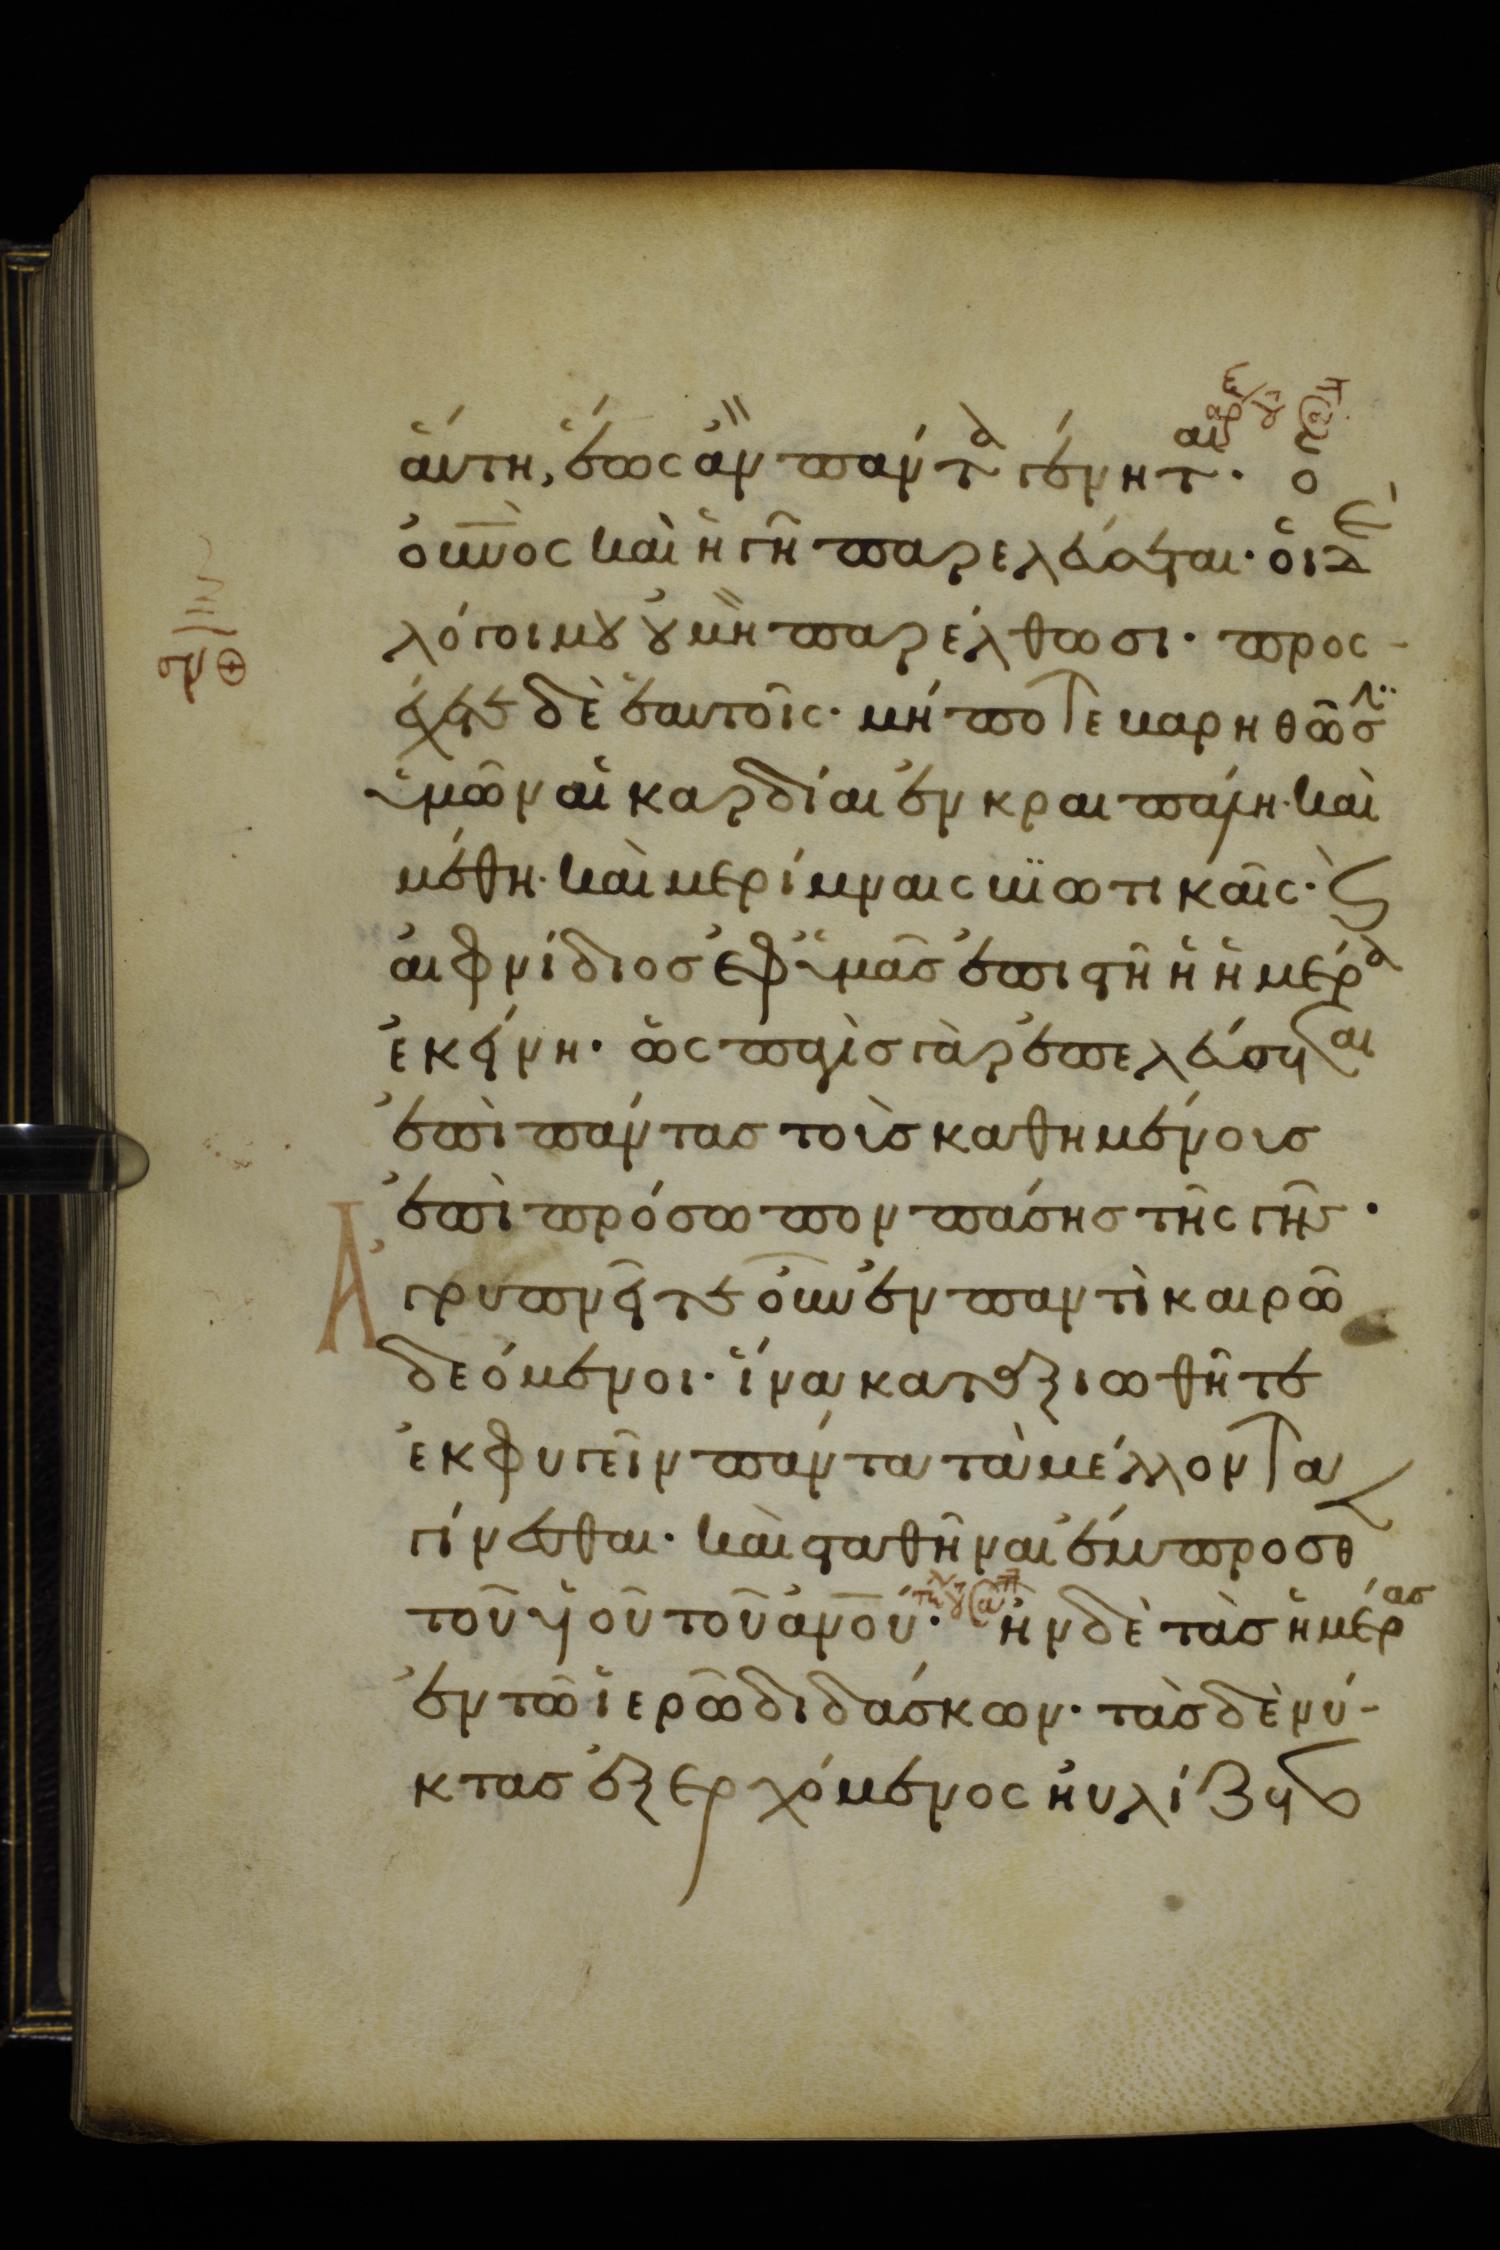 αὕτη, ἕως ἂν πάντα γένηται· ὁ
οὐνος καὶ ἡ γῆ παρελεύσεται· οἱ δὲ
λόγοι μου ου μὴ παρέλθωσι· προς-
έχετε δὲ ἑαυτοῖς· μήποτε βαρηθῶσι
ὑμῶν αἱ καρδίαι ἐν κραιπάλη· καὶ
μέθη· καὶ μερίμναις βϊωτικαῖς· καὶ
αἰφνίδιος ἐφ ὑμᾶς ἐπιστῆ ἡ ἡμέρα
ἐκείνη· ὡς παγὶς γὰρ ἐπελεύσεται
ἐπὶ πάντας τοὺς καθημένους
ἐπὶ πρόσωπον πάσης τῆς γῆς·
Ἀγρυπνεῖτε οὖν ἐν παντὶ καιρῶ
δεόμενοι· ἵνα καταξιωθῆτε
ἐκφυγεῖν πάντα τὰ μέλλοντα
γίνεσθαι· καὶ σταθῆναι ἔμπροσθεν
τοῦ υἱοῦ τοῦ ἀνοῦ· ἦν δὲ τὰς ἡμέρας
ἐν τῶ ἱερῶ διδάσκων· τὰς δὲ νύ-
κτας ἐξερχόμενος ηὐλίζετο